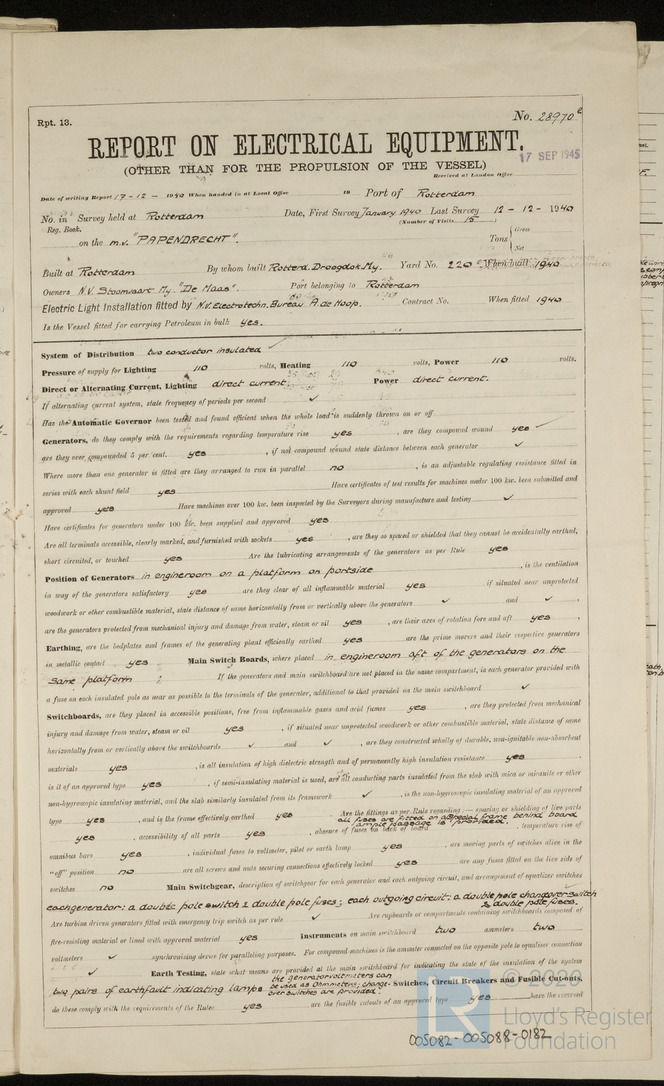 Rpt. 13.
No. 28970e
REPORT ON ELECTRICAL EQUIPMENT.
(OTHER THAN FOR THE PROPULSION OF THE VESSEL)
17 SEP 1945
Received at London Office
Date of writing Report 17-12-1940 When handed in at Local Office 19 Port of Rotterdam
No. in Survey held at Rotterdam Date, First Survey January 1940 Last Survey 12-12-1940
Reg. Book. (Number of Visits 15)
on the m.v. "PAPENDRECHT". Tons Gross Net
Built at Rotterdam By whom built Rotterd. Droogdok My. Yard No. 220 When built 1940
Owners N.V. Stoomvaart My. "De Maas". Port belonging to Rotterdam
Electric Light Installation fitted by N.V. Electrotechn. Bureau A de Hoop. Contract No. When fitted 1940
Is the Vessel fitted for carrying Petroleum in bulk yes.
System of Distribution two conductor insulated
Pressure of supply for Lighting 110 volts, Heating 110 volts, Power 110 volts.
Direct or Alternating Current, Lighting direct current. Power direct current.
If alternating current system, state frequency of periods per second ✓
Has the Automatic Governor been tested and found efficient when the whole load is suddenly thrown on or off
Generators, do they comply with the requirements regarding temperature rise yes, are they compound wound yes
are they over compounded 5 per cent. yes, if not compound wound state distance between each generator ✓
Where more than one generator is fitted are they arranged to run in parallel no, is an adjustable regulating resistance fitted in
series with each shunt field yes Have certificates of test results for machines under 100 kw. been submitted and
approved yes Have machines over 100 kw. been inspected by the Surveyors during manufacture and testing ✓
Have certificates for generators under 100 kw. been supplied and approved yes
Are all terminals accessible, clearly marked, and furnished with sockets yes, are they so spaced or shielded that they cannot be accidentally earthed,
short circuited, or touched yes Are the lubricating arrangements of the generators as per Rule yes
Position of Generators in engineroom on a platform on portside, is the ventilation
in way of the generators satisfactory yes are they clear of all inflammable material yes if situated near unprotected
woodwork or other combustible material, state distance of same horizontally from or vertically above the generators ✓ and ✓,
are the generators protected from mechanical injury and damage from water, steam or oil yes, are their axes of rotation fore and aft yes,
Earthing, are the bedplates and frames of the generating plant efficiently earthed yes are the prime movers and their respective generators
in metallic contact yes Main Switch Boards, where placed in engineroom aft of the generators on the
same platform; If the generators and main switchboard are not placed in the same compartment, is each generator provided with
a fuse on each insulated pole as near as possible to the terminals of the generator, additional to that provided on the main switchboard ✓
Switchboards, are they placed in accessible positions, free from inflammable gases and acid fumes yes, are they protected from mechanical
injury and damage from water, steam or oil yes, if situated near unprotected woodwork or other combustible material, state distance of same
horizontally from or vertically above the switchboards ✓ and ✓, are they constructed wholly of durable, non-ignitable non-absorbent
materials yes, is all insulation of high dielectric strength and of permanently high insulation resistance yes,
is it of an approved type yes, if semi-insulating material is used, are all conducting parts insulated from the slab with mica or micanite or other
non-hygroscopic insulating material, and the slab similarly insulated from its framework ✓, is the non-hygroscopic insulating material of an approved
type yes, and is the frame effectively earthed yes Are the fittings as per Rule regarding:— spacing or shielding of live parts
all fuses are fitted on a special frame behind board
ample passage is provided.
yes, accessibility of all parts yes, absence of fuses on back of board, temperature rise of
omnibus bars yes, individual fuses to voltmeter, pilot or earth lamp yes, are moving parts of switches alive in the
"off" position no are all screws and nuts securing connections effectively locked yes are any fuses fitted on the live side of
switches no Main Switchgear, description of switchgear for each generator and each outgoing circuit, and arrangement of equalizer switches
each generator: a double pole switch & double pole fuses; each outgoing circuit: a double pole changeover switch
& double pole fuses.
Are turbine driven generators fitted with emergency trip switch as per rule ✓ Are cupboards or compartments containing switchboards composed of
fire-resisting material or lined with approved material yes Instruments on main switchboard two ammeters two
voltmeters ✓ synchronising device for paralleling purposes. For compound machines is the ammeter connected on the opposite pole to equaliser connection
✓ Earth Testing, state what means are provided at the main switchboard for indicating the state of the insulation of the system
two pairs of earthfault indicating lamps the generatorvoltmeters can
be used as Ohmmeters; change-
over switches are provided. Switches, Circuit Breakers and Fusible Cut-outs,
do these comply with the requirements of the Rules yes, are the fusible cutouts of an approved type yes have the
© 2020
Lloyd's Register
Foundation
005082-005088-0182